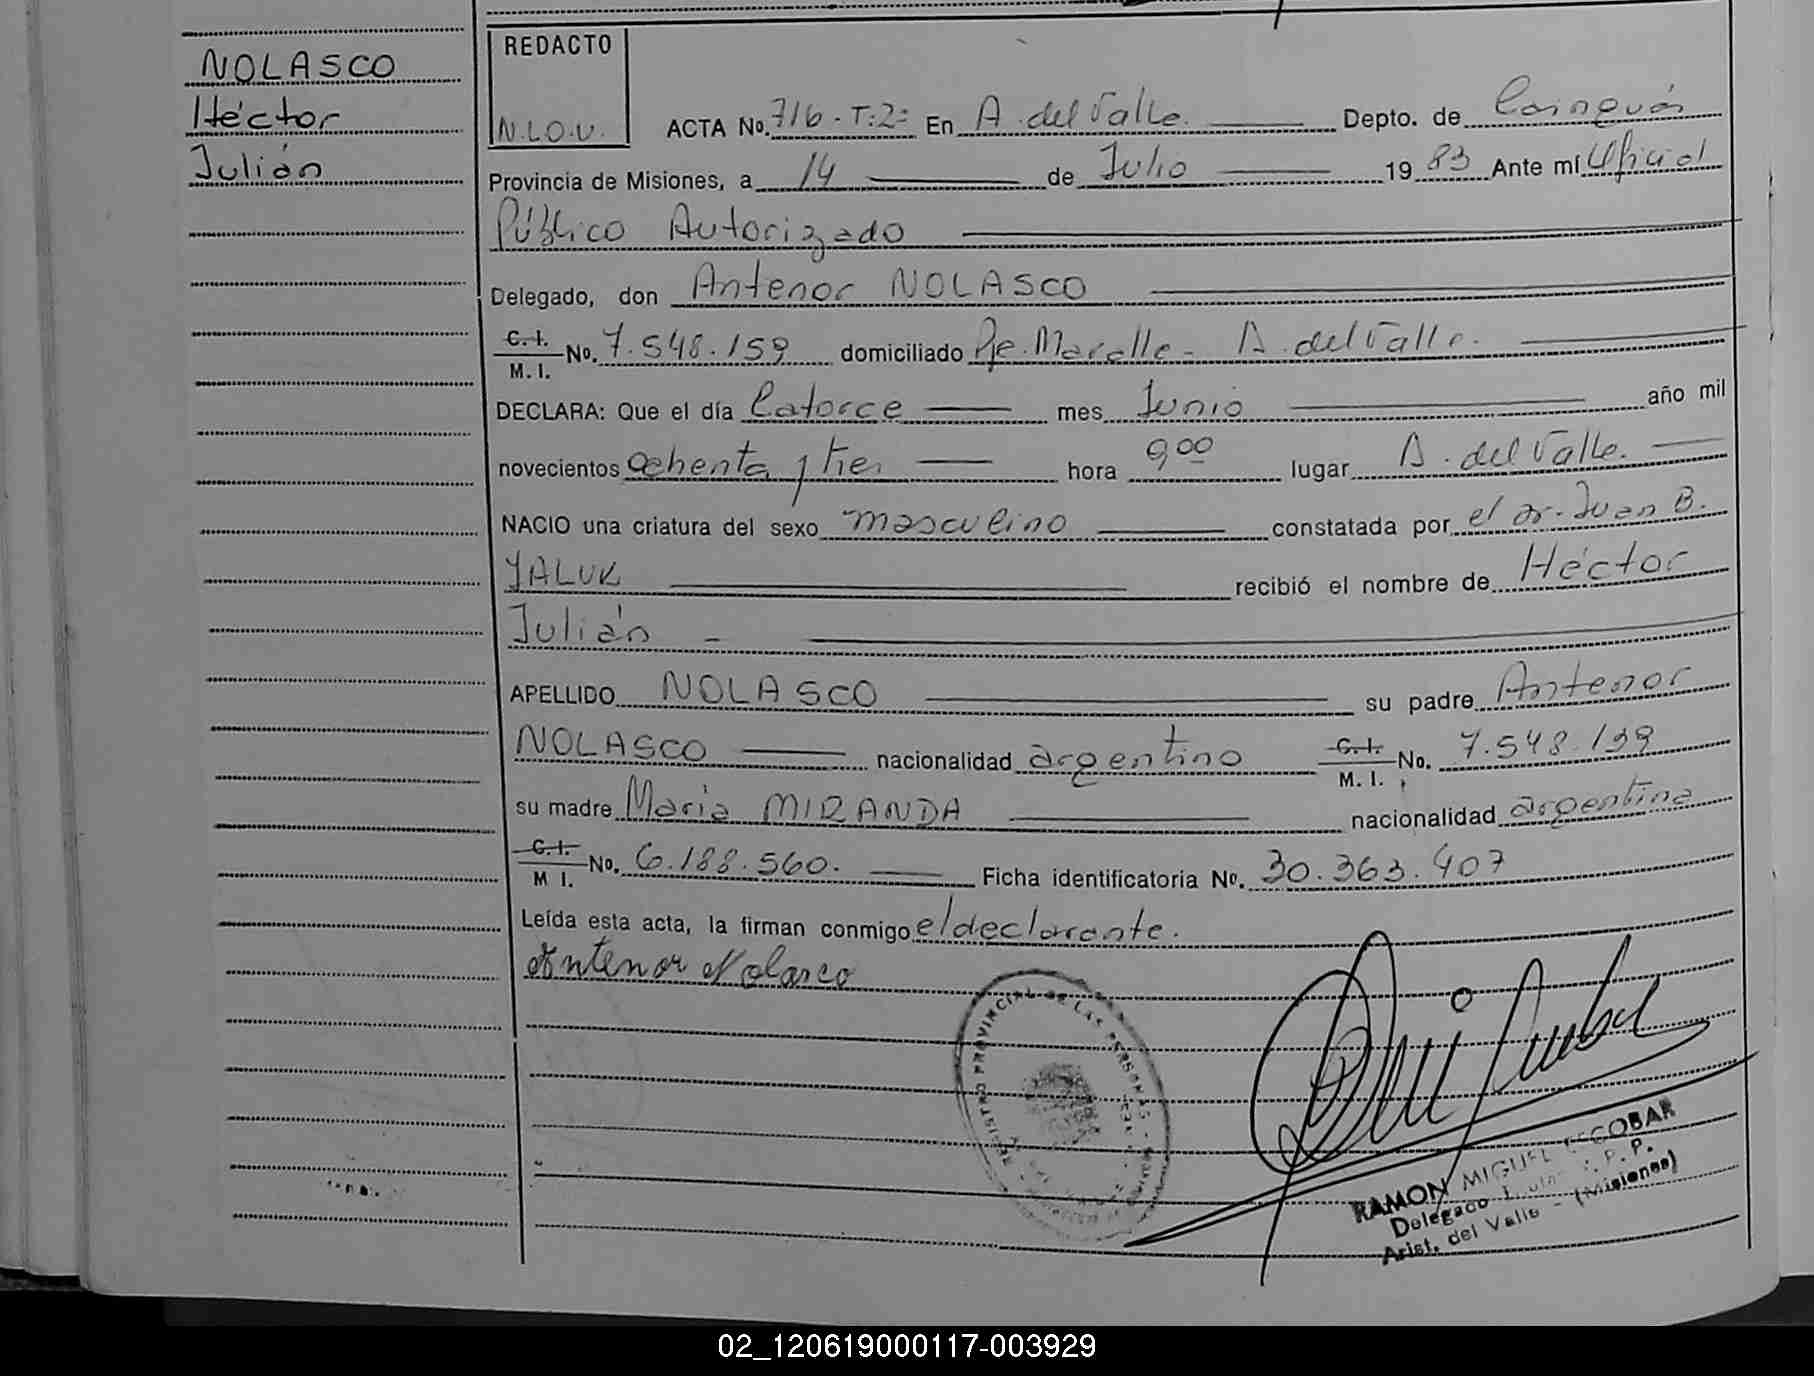 NOLASCO
Héctor
Julián
REDACTO
N.L.O.V.
ACTA No. 716 - T: 2º En A. del Valle. Depto. de Cainguás
Provincia de Misiones, a 14 de Julio 1983 Ante mí Oficial
Público Autorizado
Delegado, don Antenor NOLASCO
C. I. M. I. No. 7.548.159 domiciliado Pje. Maralle - A. del Valle.
DECLARA: Que el día Catorce mes Junio año mil
novecientos ochenta y tres hora 9 00 lugar A. del Valle.
NACIO una criatura del sexo masculino constatada por el Dr. Juan B.
YALUK recibió el nombre de Héctor
Julián -
APELLIDO NOLASCO su padre Antenor
NOLASCO nacionalidad argentino C. I. M. I. No. 7.548.159
su madre María MIRANDA nacionalidad argentina
C. I. M I. No. 6.188.560. Ficha identificatoria No. 30.363.407
Leída esta acta, la firman conmigo el declarante.
Antenor Nolasco
REGISTRO PROVINCIAL DE LAS PERSONAS
RAMON MIGUEL ESCOBAR
Delegado R. P. P.
Arist. del Valle - (Misiones)
02_120619000117-003929